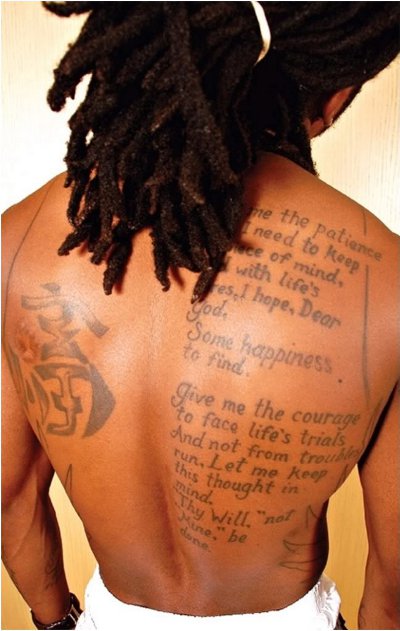 me the patience
I need to keep
of mind,
with life's
I hope, Dear
God,
Some happiness
to find.
Give me the courage
to face life's trials
And not from troubles
run. Let me keep
this thought in
mind,
"Thy Will, "not
Mine," be
done.